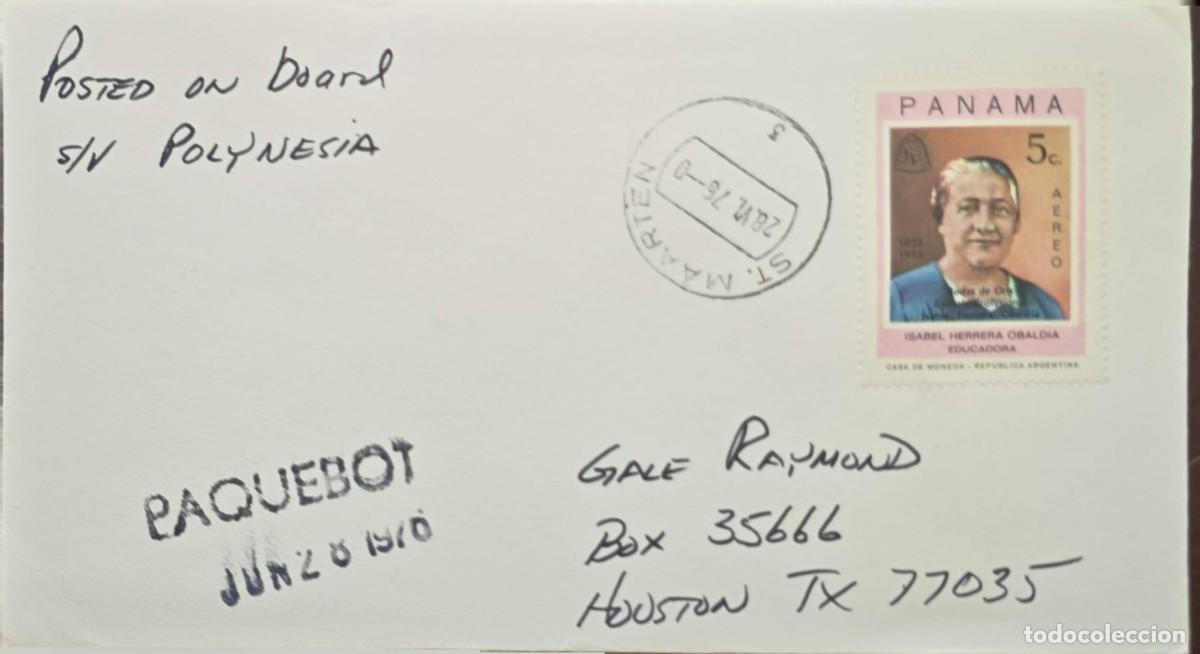 Posted on board
s/v Polynesia
3
ST. MAARTEN
28.VI.76-0
PANAMA
5c.
AEREO
1923
1973
Bodas de Oro
Isabel Herrera Obaldia
ISABEL HERRERA OBALDIA
EDUCADORA
CASA DE MONEDA - REPUBLICA ARGENTINA
PAQUEBOT
JUN 28 1976
Gale Raymond
Box 35666
Houston TX 77035
todocoleccion